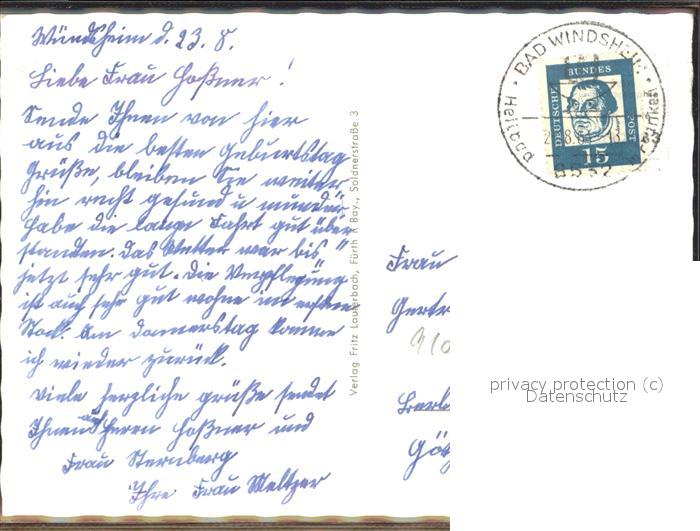 Windsheim d. 23. 8.
Liebe Frau Hoßner!
Sende Ihnen von hier
aus die besten Geburtstag
Grüße, bleiben Sie weiter
hin recht gesund u munder
habe die lange Fahrt gut über
standen. Das Wetter war bis
jetzt sehr gut. Die Verpflegung
ist auch sehr gut wohne im ersten
Stock. Am Donnerstag komme
ich wieder zurück.
Viele herzliche Grüße sendet
Ihnen auch Herrn Hoßner und
Frau Sternberg
Ihre Frau Meltzer
Verlag Fritz Lauterbach, Fürth i. Bay., Soldnerstraße 3
BAD WINDSHEIM
Heilbad
DEUTSCHE
BUNDES
POST
15
8532
Frau
Gertr
Göt
privacy protection (c)
Datenschutz